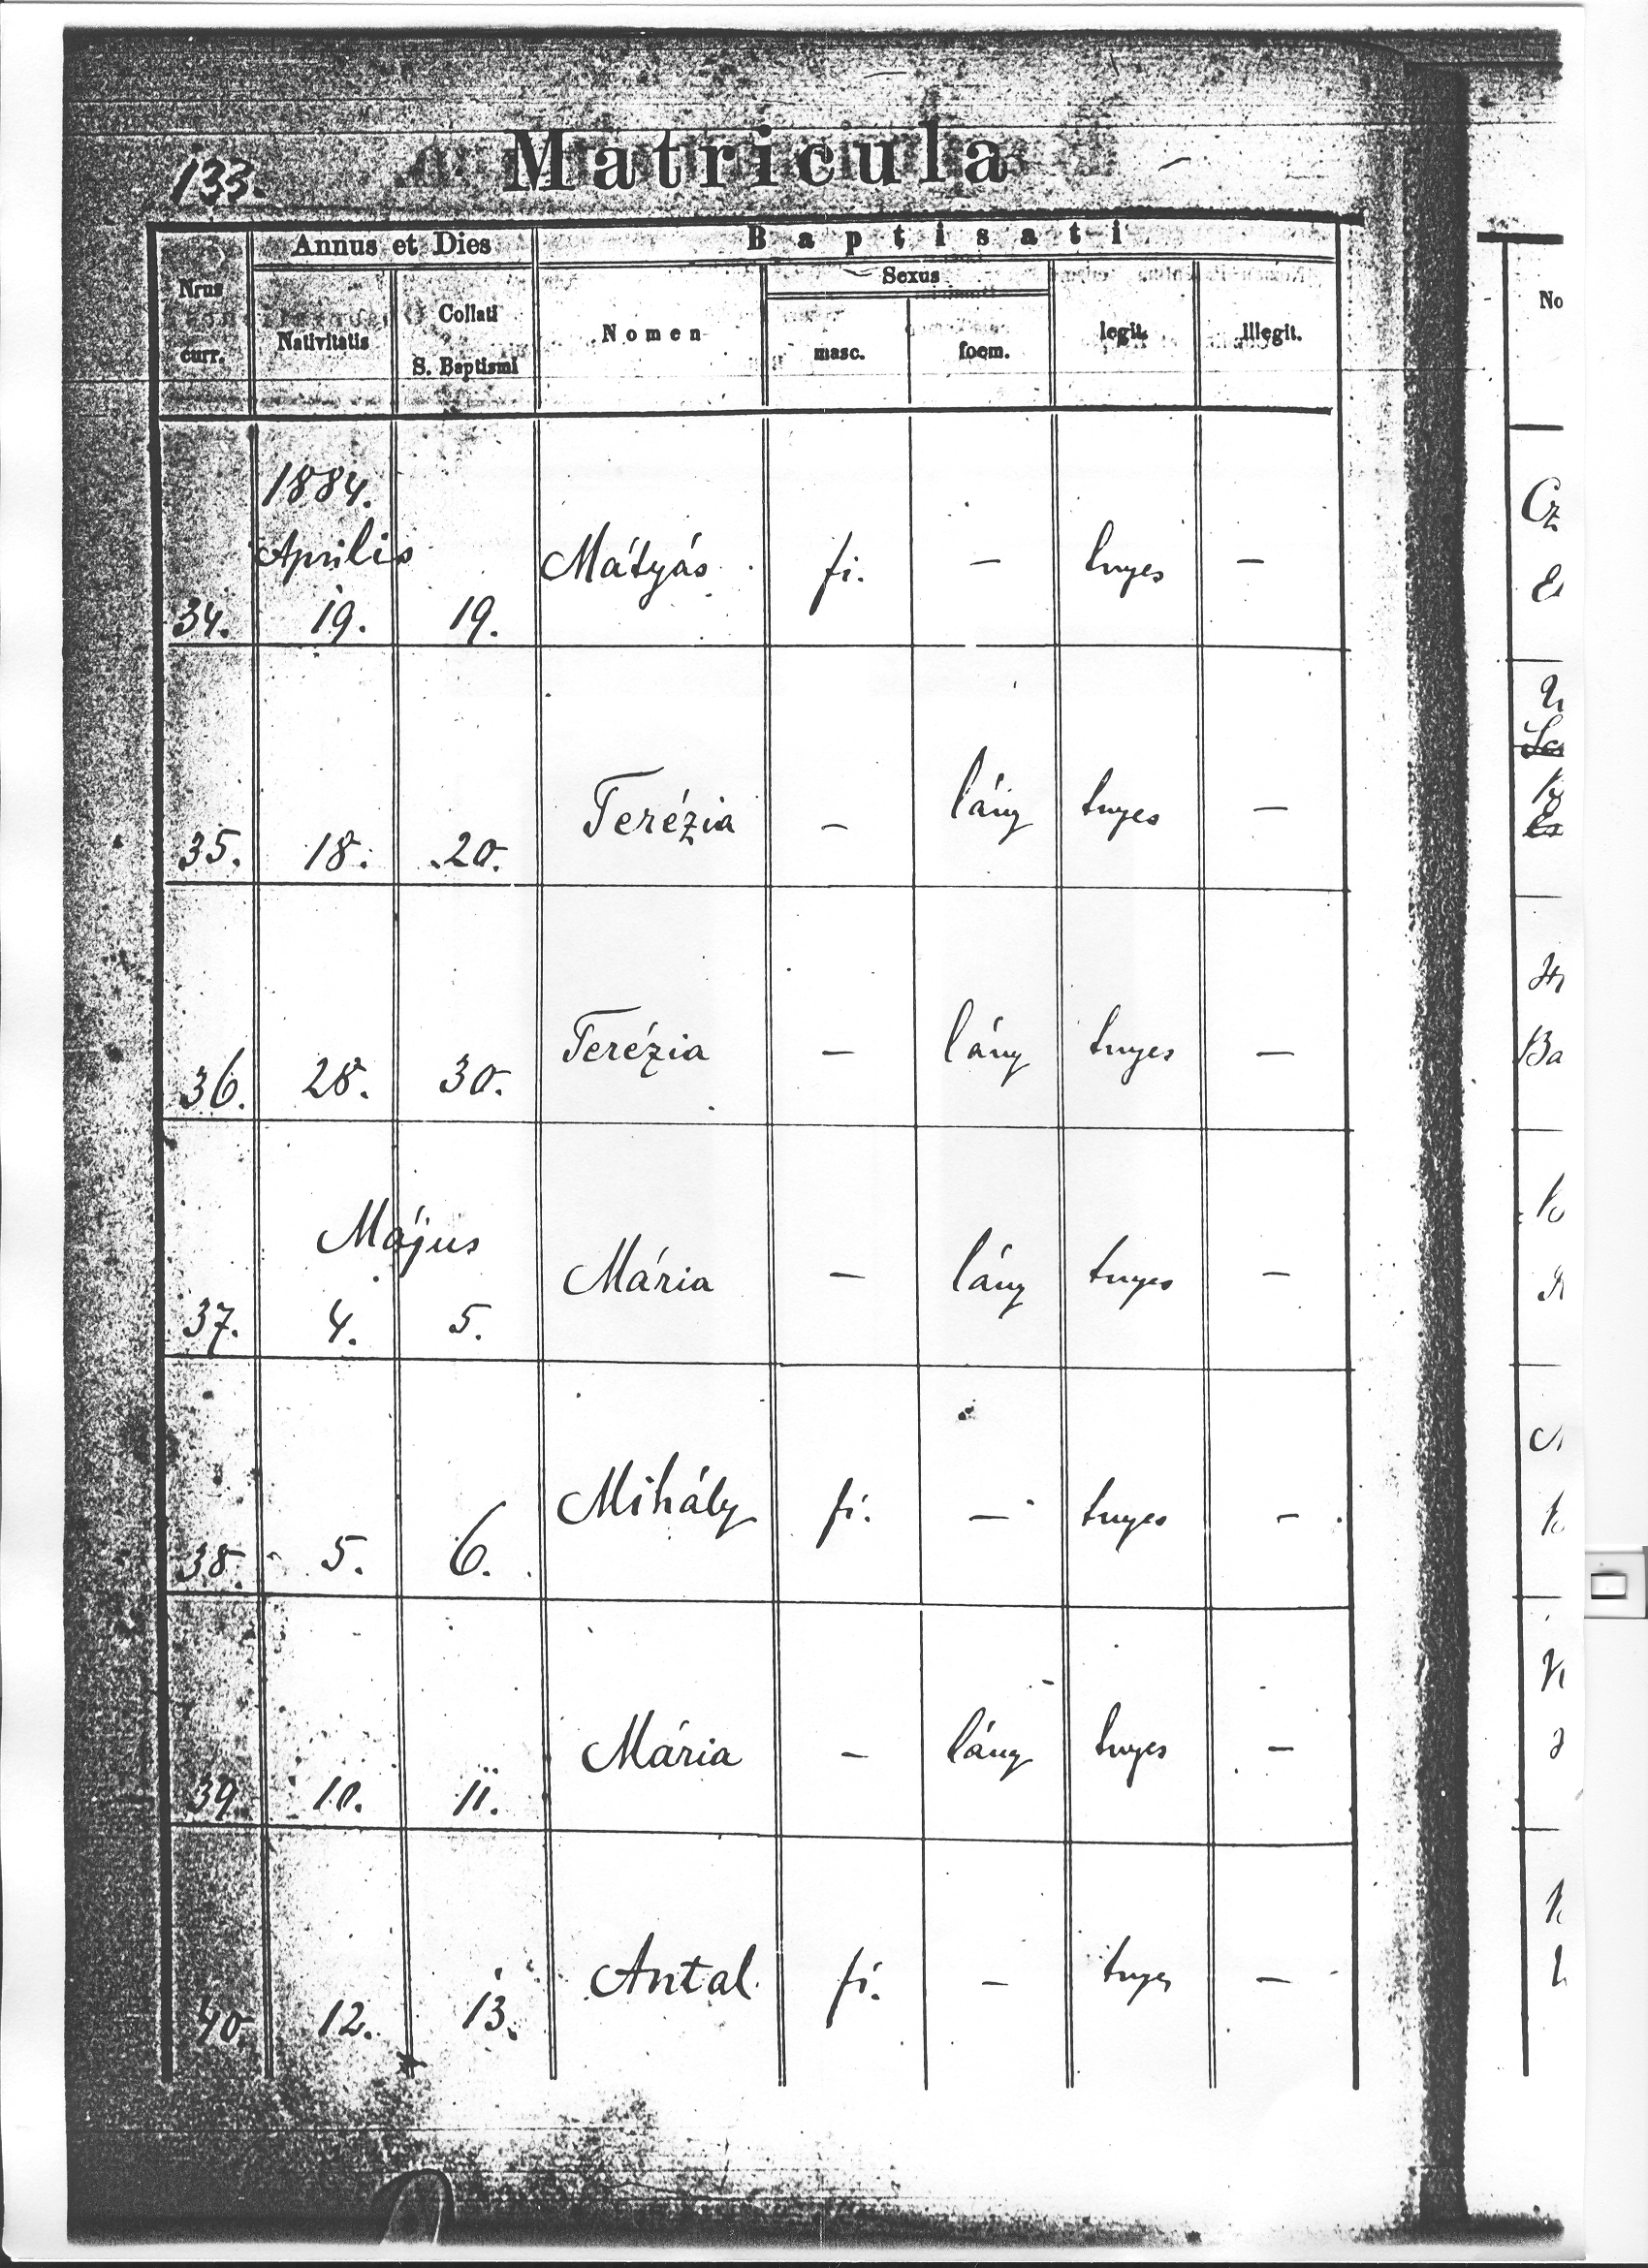 133.
Matricula
Annus et Dies
Baptisati
Nrus
curr.
Nativitatis
Collati
S. Baptismi
Nomen
Sexus
masc.
foem.
legit.
illegit.
No
1884.
Április
34. 19. 19. Mátyás fi. — tvyes —
Cz
35. 18. 20. Terézia — lány tvyes —
36. 28. 30. Terézia — lány tvyes —
Ba
Május
37. 4. 5. Mária — lány tvyes —
38. 5. 6. Mihály fi. — tvyes —
39. 10. 11. Mária — lány tvyes —
40. 12. 13. Antal fi. — tvyes —